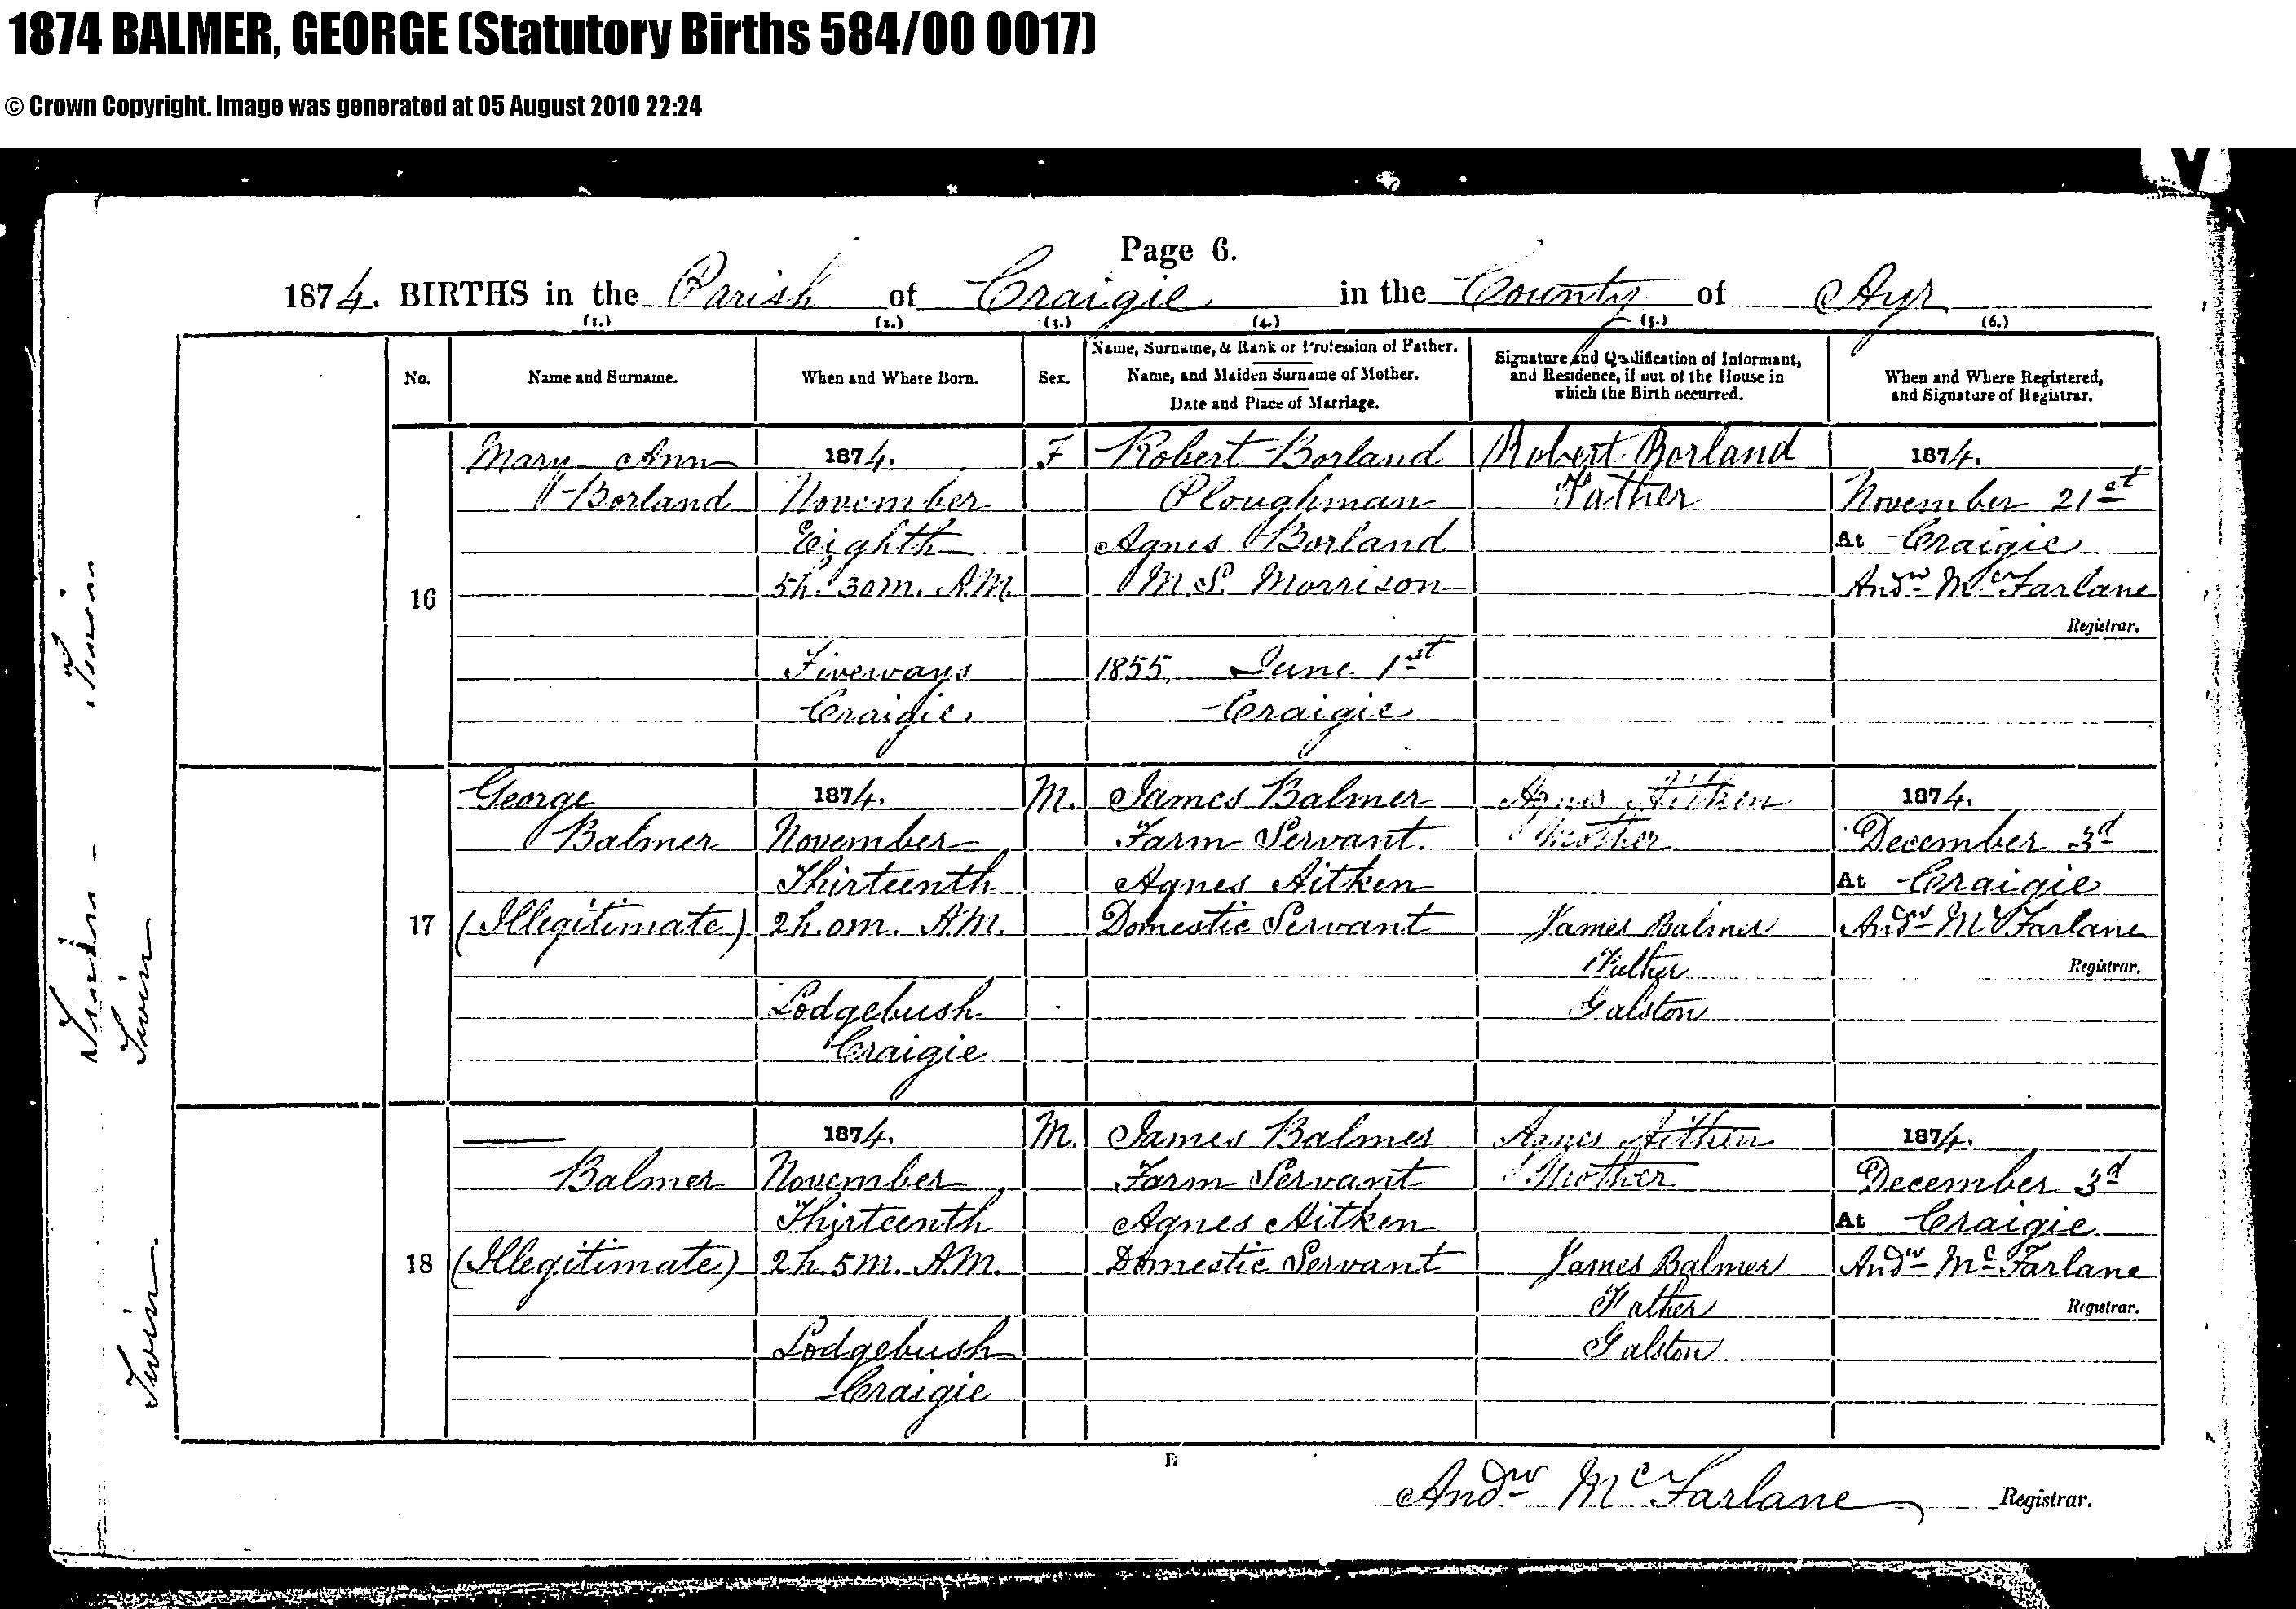 1874 BALMER, GEORGE (Statutory Births 584/00 0017)
© Crown Copyright. Image was generated at 05 August 2010 22:24
Page 6.
1874. BIRTHS in the Parish of Craigie in the County of Ayr
(1.) (2.) (3.) (4.) (5.) (6.)
No.
Name and Surname.
When and Where Born.
Sex.
Name, Surname, & Rank or Profession of Father.
Name, and Maiden Surname of Mother.
Date and Place of Marriage.
Signature and Qualification of Informant,
and Residence, if out of the House in
which the Birth occurred.
When and Where Registered,
and Signature of Registrar.
16
Mary Ann
Borland
1874.
November
Eighth
5h. 30m. A.M.
Fiveways
Craigie.
F
Robert Borland
Ploughman
Agnes Borland
M.S. Morrison
1855, June 1st
Craigie
Robert Borland
Father
1874.
November 21st
At Craigie
Andw McFarlane
Registrar.
17
George
Balmer
(Illegitimate)
1874.
November
Thirteenth
2h. 0m. A.M.
Lodgebush
Craigie
M.
James Balmer
Farm Servant.
Agnes Aitken
Domestic Servant
Agnes Aitken
Mother
James Balmer
Father
Galston
1874.
December 3d
At Craigie
Andw McFarlane
Registrar.
18
Balmer
(Illegitimate)
1874.
November
Thirteenth
2h. 5m. A.M.
Lodgebush
Craigie
M.
James Balmer
Farm Servant
Agnes Aitken
Domestic Servant
Agnes Aitken
Mother
James Balmer
Father
Galston
1874.
December 3d
At Craigie
Andw McFarlane
Registrar.
Twin
Twin
B
Andw McFarlane Registrar.